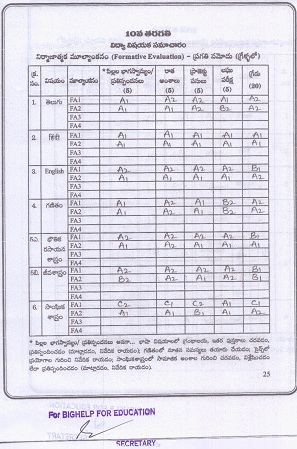 10వ తరగతి
విద్యా విషయక సమాచారం
నిర్మాణాత్మక మూల్యాంకనం (Formative Evaluation) - ప్రగతి నమోదు (గ్రేడ్లలో)
క్ర.సం. విషయం మూల్యాంకనం *పిల్లల భాగస్వామ్యం/ ప్రతిస్పందనలు (5) రాత అంశాలు (5) ప్రాజెక్టు పనులు (5) లఘు పరీక్ష (5) గ్రేడు (20)
1. తెలుగు FA1 A1 A2 A2 A1 A2
FA2 A1 A2 A2 B2 A2
FA3
FA4
2. हिंदी FA1 A1 A1 A1 A1 A1
FA2 A2 A1 A1 A1 A1
FA3
FA4
3. English FA1 A2 A2 A2 A2 B1
FA2 A2 A1 A1 A1 A2
FA3
FA4
4. గణితం FA1 A2 A1 A1 B2 A2
FA2 A1 A1 A1 B2 A2
FA3
FA4
5ఎ. భౌతిక రసాయన శాస్త్రం FA1 A2 A2 A2 A2 B1
FA2 A1 A1 A1 A1 A1
FA3
FA4
5బి. జీవశాస్త్రం FA1 A2 A2 A2 A2 B1
FA2 B2 A2 A2 A2 B1
FA3
FA4
6. సాంఘిక శాస్త్రం FA1 C2 C1 C2 A1 C1
FA2 A1 A1 B1 A1 A2
FA3
FA4
* పిల్లల భాగస్వామ్యం/ ప్రతిస్పందనలు అనగా... భాషా విషయాలలో గ్రంథాలయ, ఇతర పుస్తకాలు చదవడం,
ప్రతిస్పందించడం (మాట్లాడడం, నివేదిక రాయడం); గణితంలో నూతన సమస్యలు తయారు చేయడం; సైన్స్‌లో
ప్రయోగాల గురించి నివేదిక రాయడం; సాంఘికశాస్త్రంలో సామాజిక అంశాల గురించి చదవడం, విశ్లేషించడం
లేదా ప్రతిస్పందించడం (మాట్లాడడం, నివేదిక రాయడం).
25
For BIGHELP FOR EDUCATION
SECRETARY